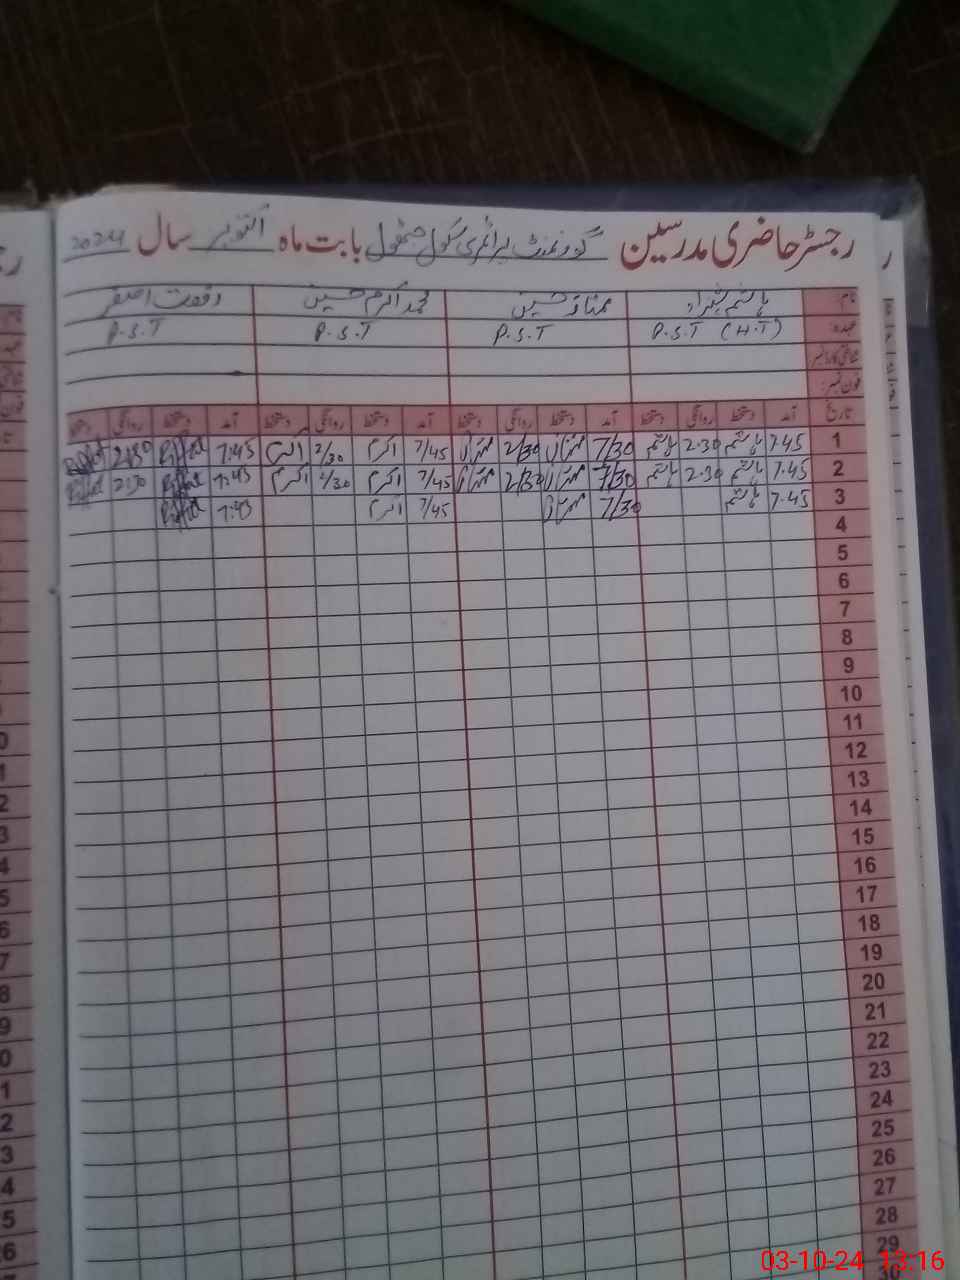 رجسٹر حاضری مدرسین گورنمنٹ پرائمری سکول بابت ماہ اکتوبر سال 2024
نام ہاشم شہزاد ممتاز حسین محمد اکرم حسین رفعت اصغر
عہدہ P.S.T (H.T) P.S.T P.S.T P.S.T
شناختی کارڈ نمبر
فون نمبر:
تاریخ آمد دستخط روانگی دستخط آمد دستخط روانگی دستخط آمد دستخط روانگی دستخط آمد دستخط روانگی دستخط
1 7.45 ہاشم 2.30 ہاشم 7/30 ممتاز 2/30 ممتاز 7/45 اکرم 2/30 اکرم 7:45 Riffat 2:30 Riffat
2 7.45 ہاشم 2.30 ہاشم 7/30 ممتاز 2/30 ممتاز 7/45 اکرم 2/30 اکرم 7:45 Riffat 2:30 Riffat
3 7.45 ہاشم 7/30 ممتاز 7/45 اکرم 7:45 Riffat
4
5
6
7
8
9
10
11
12
13
14
15
16
17
18
19
20
21
22
23
24
25
26
27
28
29
03-10-24 13:16